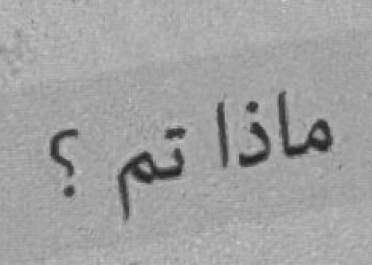 ماذا تم ؟